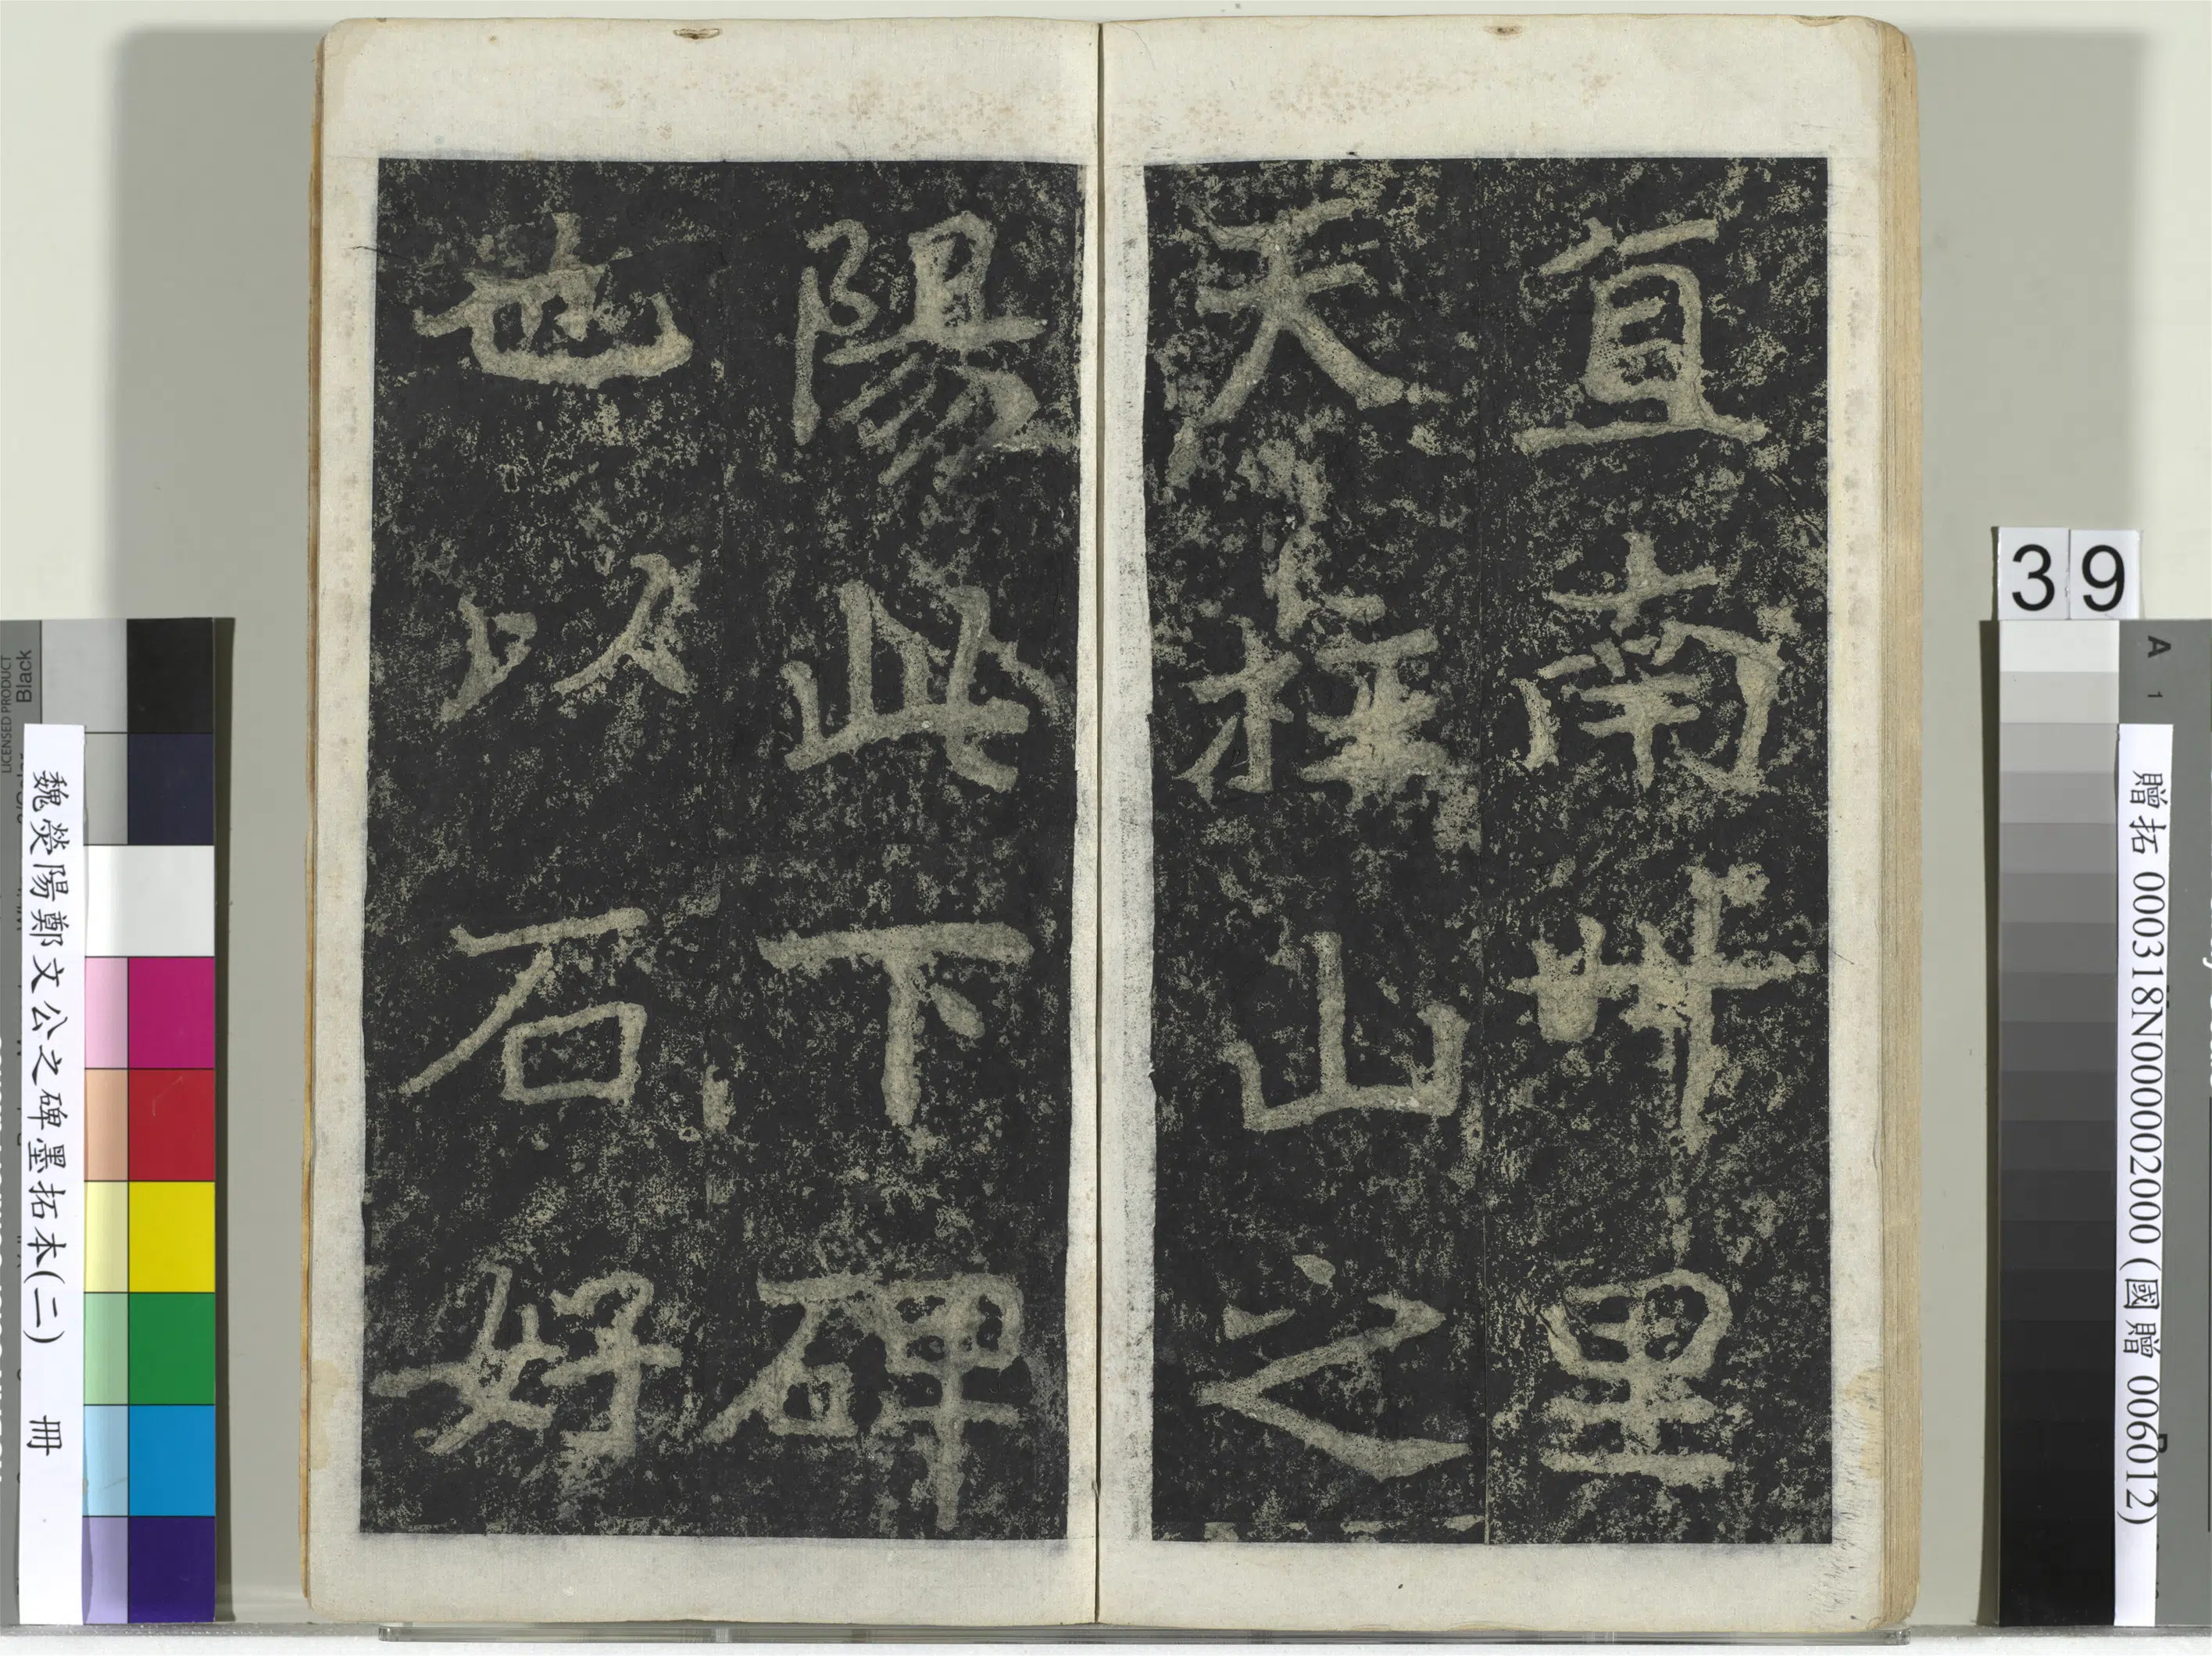 直南卌里
天柱山之
陽此下碑
也以石好
39
魏滎陽鄭文公之碑墨拓本(二) 冊
贈拓 000318N000002000 (國贈 006012)
LICENSED PRODUCT
Black
A
1